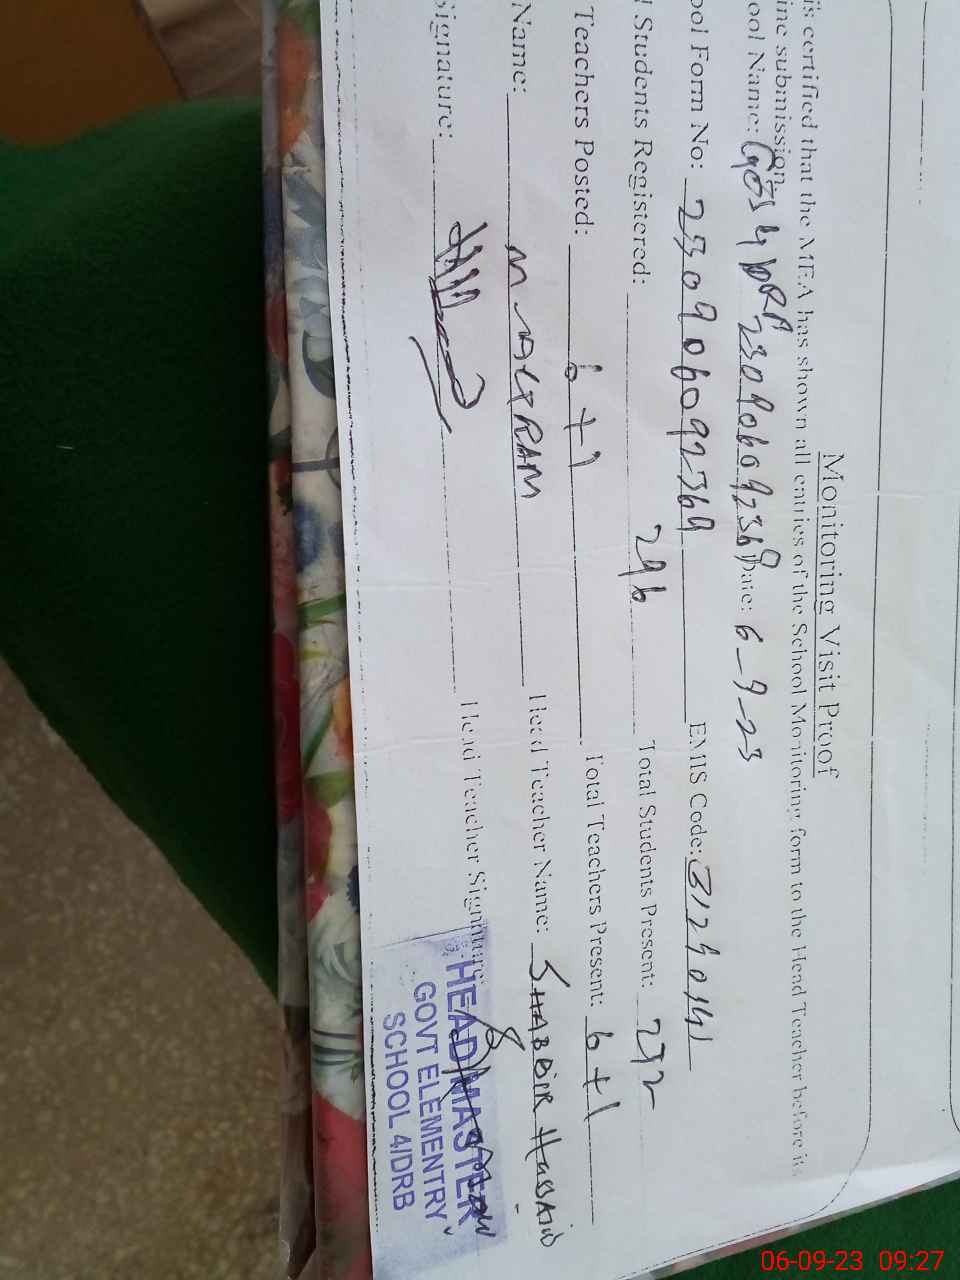 Monitoring Visit Proof
is certified that the MEA has shown all entries of the School Monitoring form to the Head Teacher before its
ine submission.
ool Name: GES 4 DRB 230906092369 Date: 6-9-23
ool Form No: 230906092369 EMIS Code: 31290141
l Students Registered: 296 Total Students Present: 232
Teachers Posted: 6+1 Total Teachers Present: 6+1
Name: M. AKRAM Head Teacher Name: SHABBIR HUSSAIN
Signature: Head Teacher Signature:
HEAD MASTER
GOVT ELEMENTRY
SCHOOL 4/DRB
06-09-23 09:27